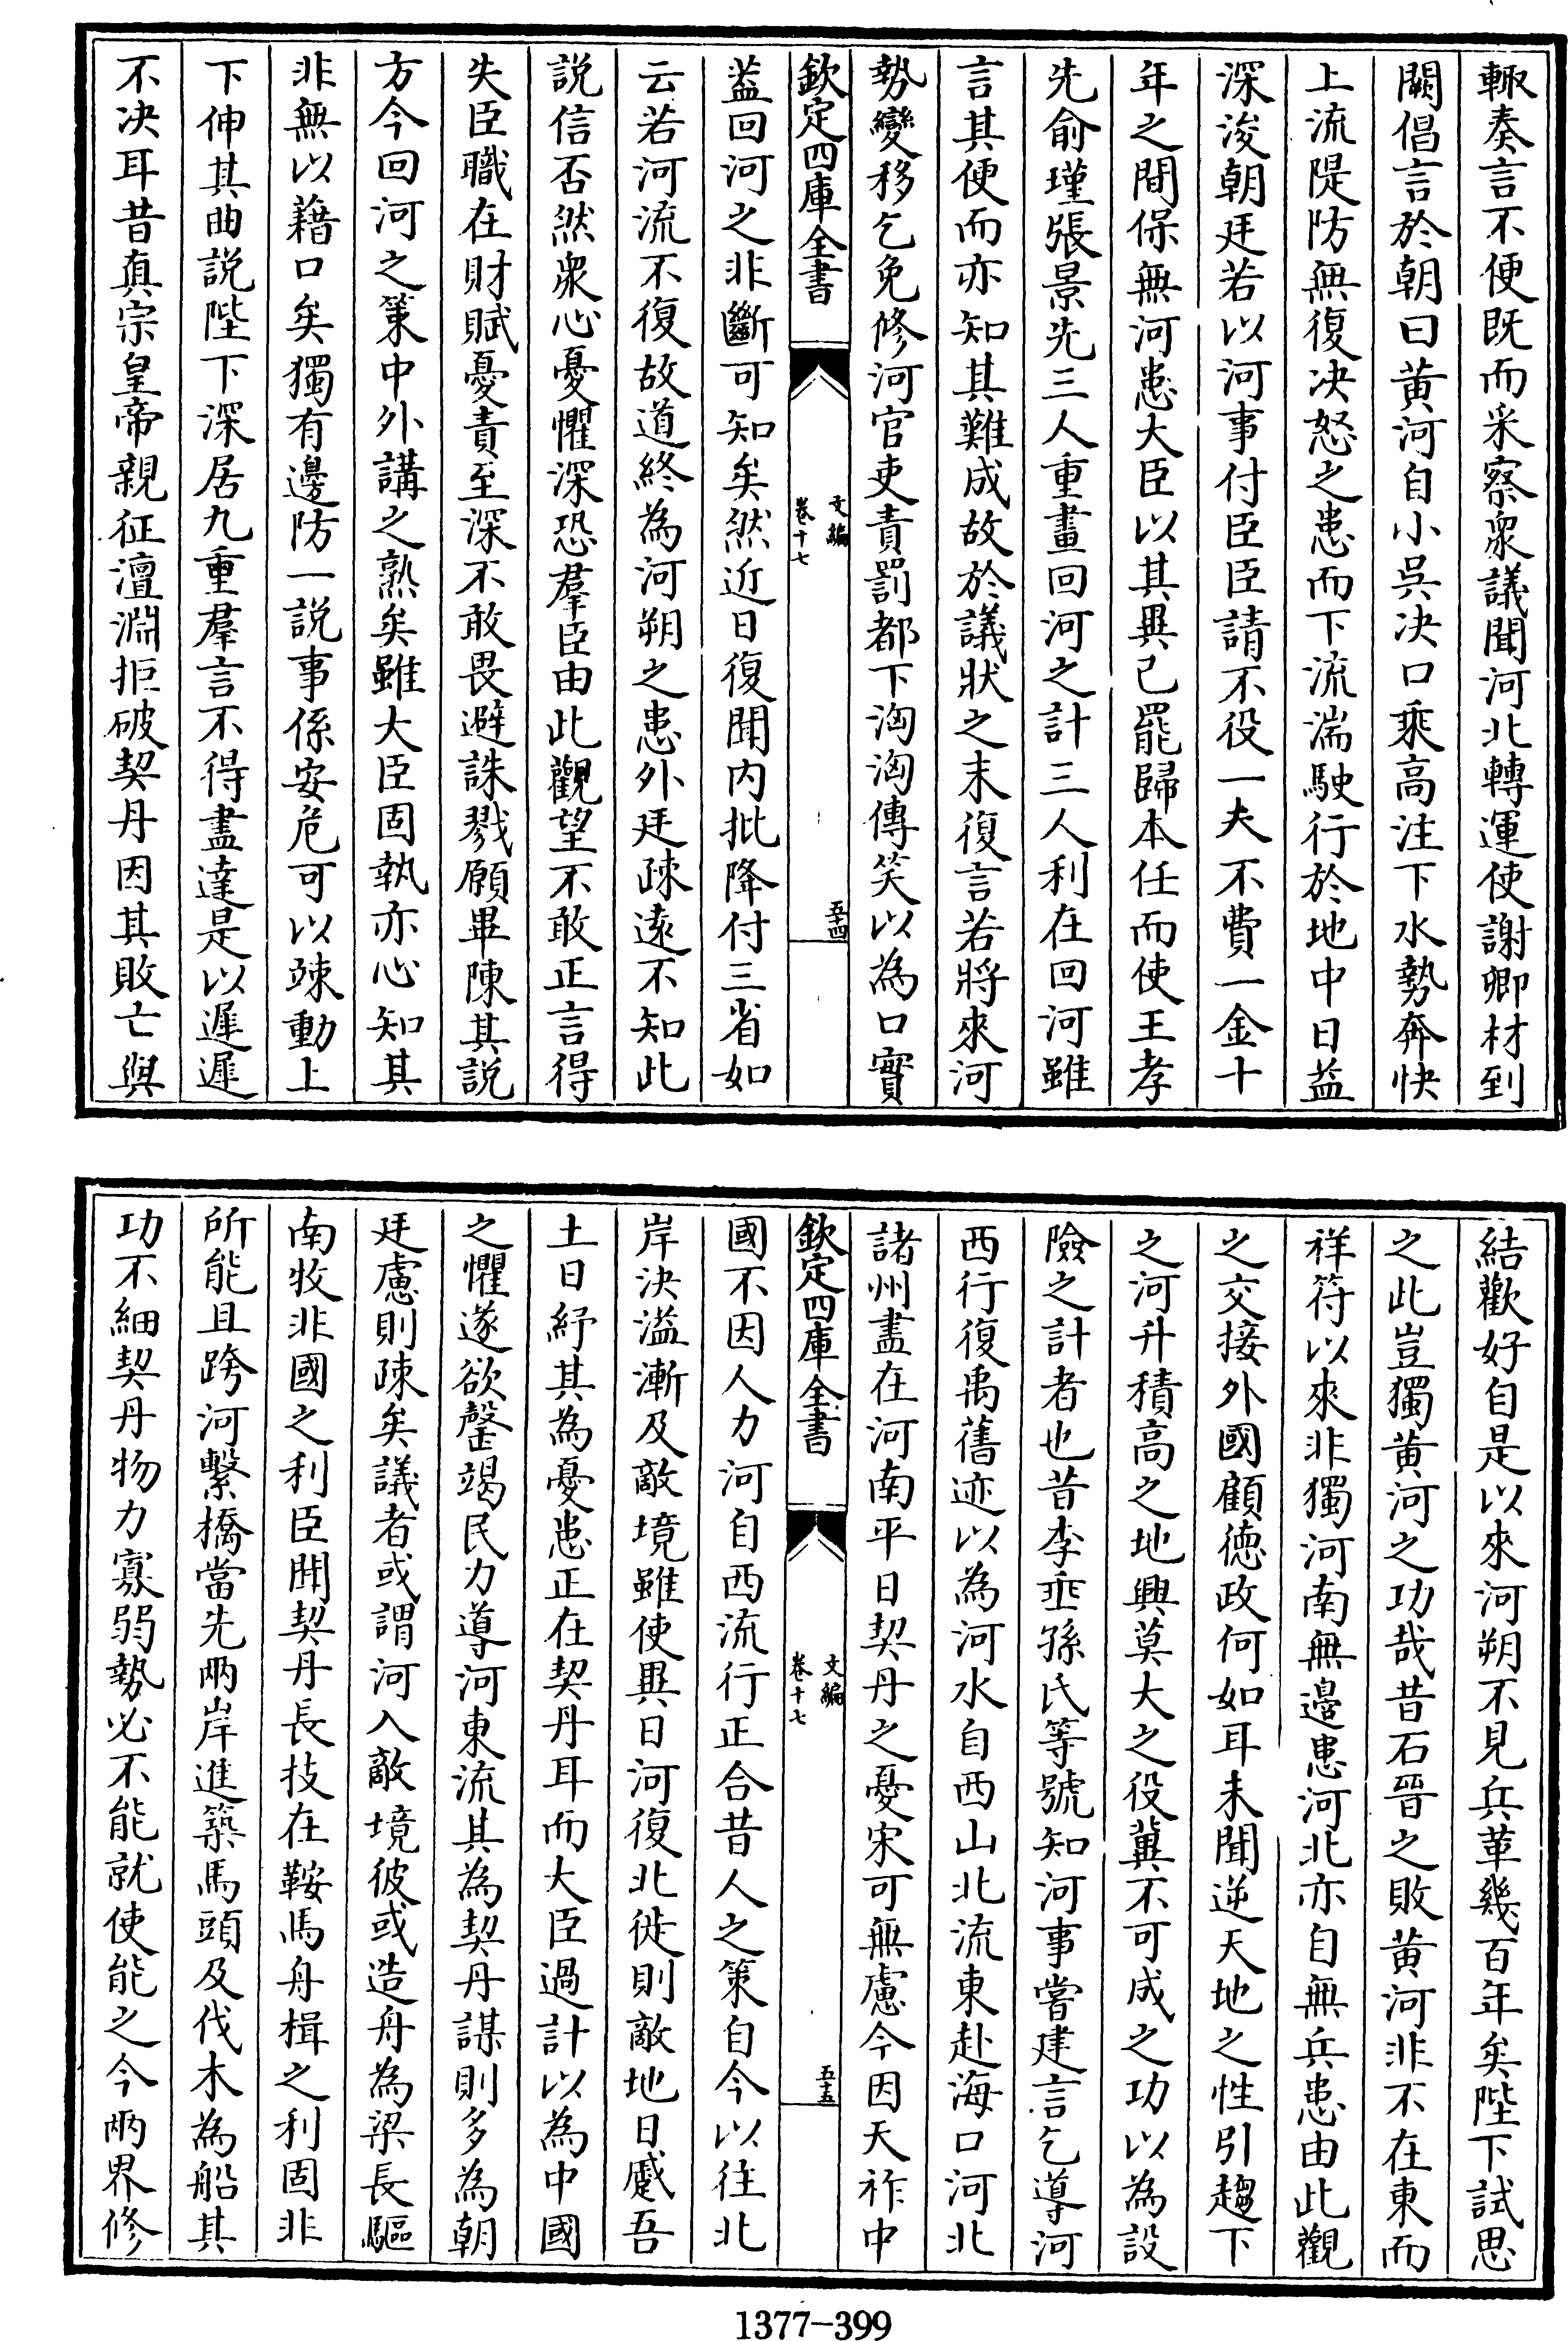 輙奏言不便既而采察衆議聞河北轉運使謝卿材到
闕倡言於朝曰黄河自小吳决口乘高注下水勢奔快
上流隄防無復决怒之患而下流湍駛行於地中日益
深浚朝廷若以河事付臣臣請不役一夫不費一金十
年之間保無河患大臣以其異己罷歸本任而使王孝
先俞瑾張景先三人重畫回河之計三人利在回河雖
言其便而亦知其難成故於議狀之末復言若將來河
勢變移乞免修河官吏責罰都下洶洶傳笑以為口實
欽定四庫全書
文編
卷十七
五十四
葢回河之非斷可知矣然近日復聞内批降付三省如
云若河流不復故道終為河朔之患外廷疎遠不知此
説信否然衆心憂懼深恐羣臣由此觀望不敢正言得
失臣職在財賦憂責至深不敢畏避誅戮願畢陳其説
方今回河之策中外講之熟矣雖大臣固執亦心知其
非無以藉口矣獨有邊防一説事係安危可以竦動上
下伸其曲説陛下深居九重羣言不得盡達是以遲遲
不决耳昔真宗皇帝親征澶淵拒破契丹因其敗亡與
結歡好自是以來河朔不見兵革幾百年矣陛下試思
之此豈獨黄河之功哉昔石晉之敗黄河非不在東而
祥符以來非獨河南無邊患河北亦自無兵患由此觀
之交接外國顧德政何如耳未聞逆天地之性引趨下
之河升積高之地興莫大之役冀不可成之功以為設
險之計者也昔李垂孫氏等號知河事嘗建言乞導河
西行復禹舊迹以為河水自西山北流東赴海口河北
諸州盡在河南平日契丹之憂宋可無慮今因天祚中
欽定四庫全書
文編
卷十七
五十五
國不因人力河自西流行正合昔人之策自今以往北
岸决溢漸及敵境雖使異日河復北徙則敵地日蹙吾
土日紓其為憂患正在契丹耳而大臣過計以為中國
之懼遂欲罄竭民力導河東流其為契丹謀則多為朝
廷慮則疎矣議者或謂河入敵境彼或造舟為梁長驅
南牧非國之利臣聞契丹長技在鞍馬舟楫之利固非
所能且跨河繫橋當先兩岸進築馬頭及伐木為船其
功不細契丹物力寡弱勢必不能就使能之今兩界修
1377-399